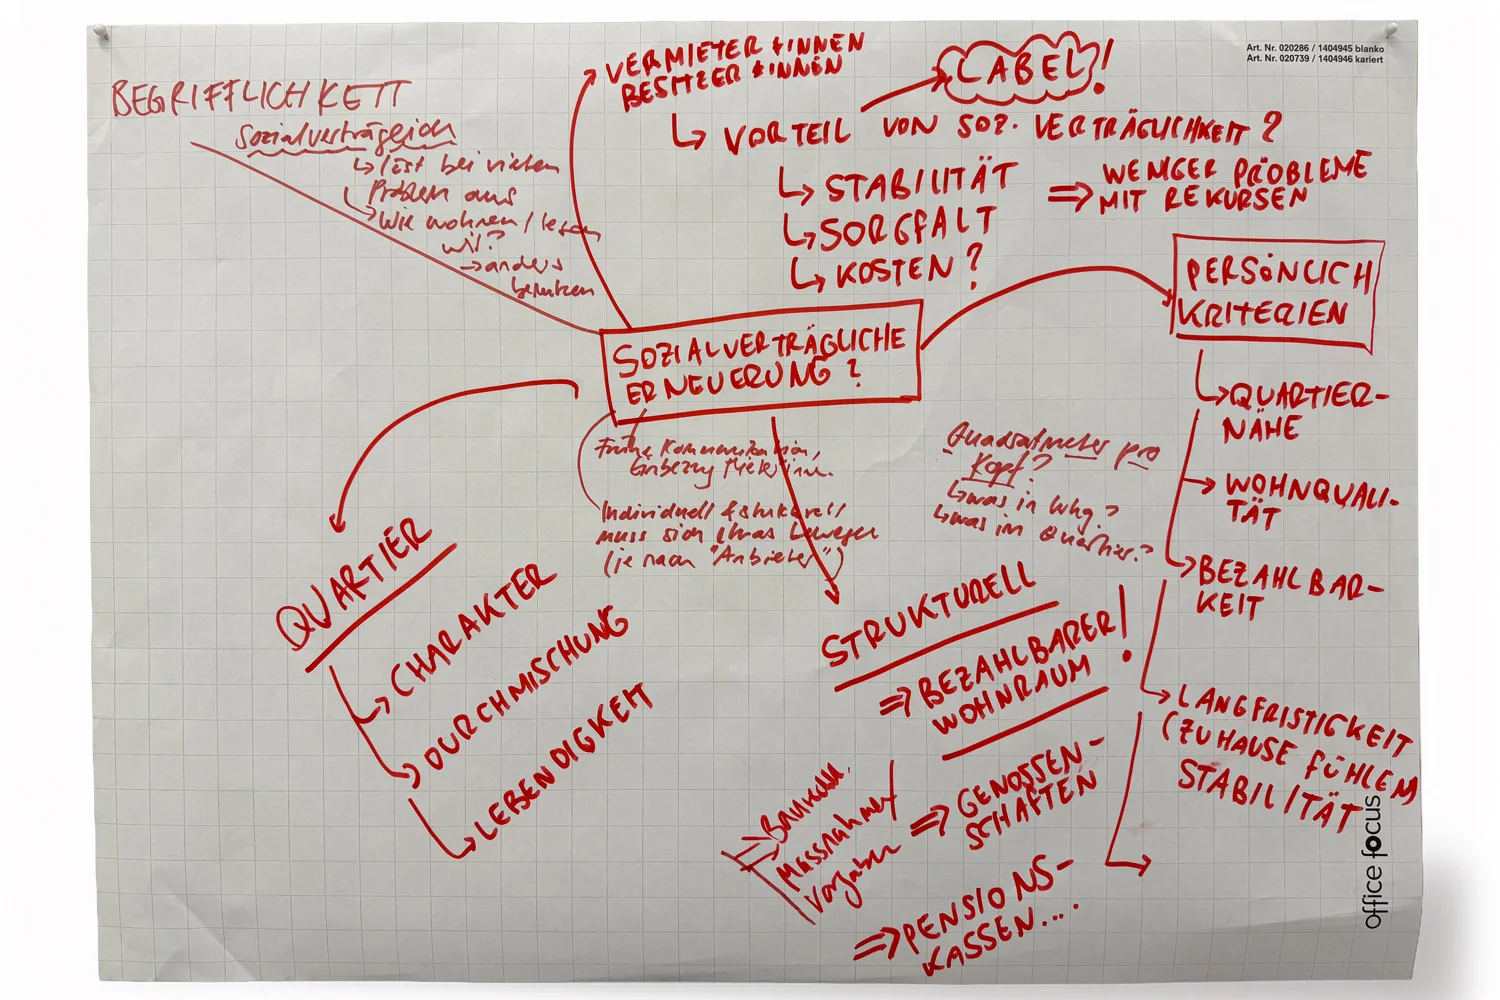 Art. Nr. 020286 / 1404945 blanko
Art. Nr. 020739 / 1404946 kariert
BEGRIFFLICHKEIT
Sozialverträglich
löst bei vielen
Problem aus
Wie wohnen / leben
wir?
anders
benutzen
VERMIETER *INNEN
BESITZER *INNEN
LABEL!
VORTEIL VON SOZ. VERTRÄGLICHKEIT?
STABILITÄT
SORGFALT
KOSTEN?
WENIGER PROBLEME
MIT REKURSEN
SOZIALVERTRÄGLICHE
ERNEUERUNG?
PERSÖNLICH
KRITERIEN
QUARTIER-
NÄHE
WOHNQUALI-
TÄT
BEZAHLBAR-
KEIT
LANGFRISTIGKEIT
(ZUHAUSE FÜHLEN
STABILITÄT
Frühe Kommunikation,
Einbezug Mieterinn.
Individuell & strukturell
muss sich etwas bewegen
(je nach "Anbieter")
Quadratmeter pro
Kopf?
was in Whg.?
was im Quartier?
QUARTIER
CHARAKTER
DURCHMISCHUNG
LEBENDIGKEIT
STRUKTURELL
BEZAHLBARER
WOHNRAUM!
GENOSSEN-
SCHAFTEN
PENSIONS-
KASSEN....
Massnahmen/
Vorgaben
office focus